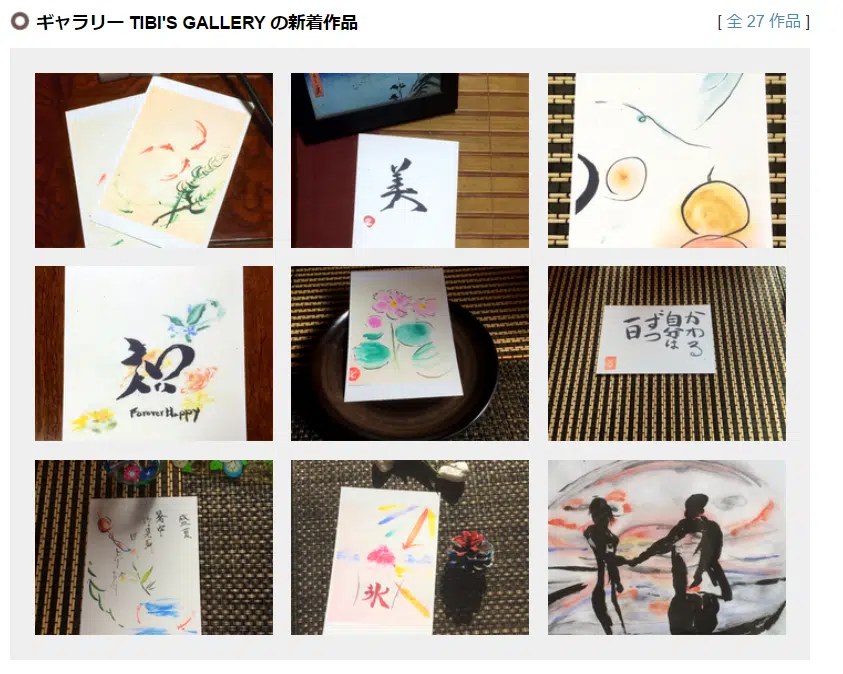 ギャラリー TIBI'S GALLERY の新着作品
[ 全 27 作品 ]
美
祝
Forever Happy
かわる
自分は
ずつ
一日
盛夏
氷